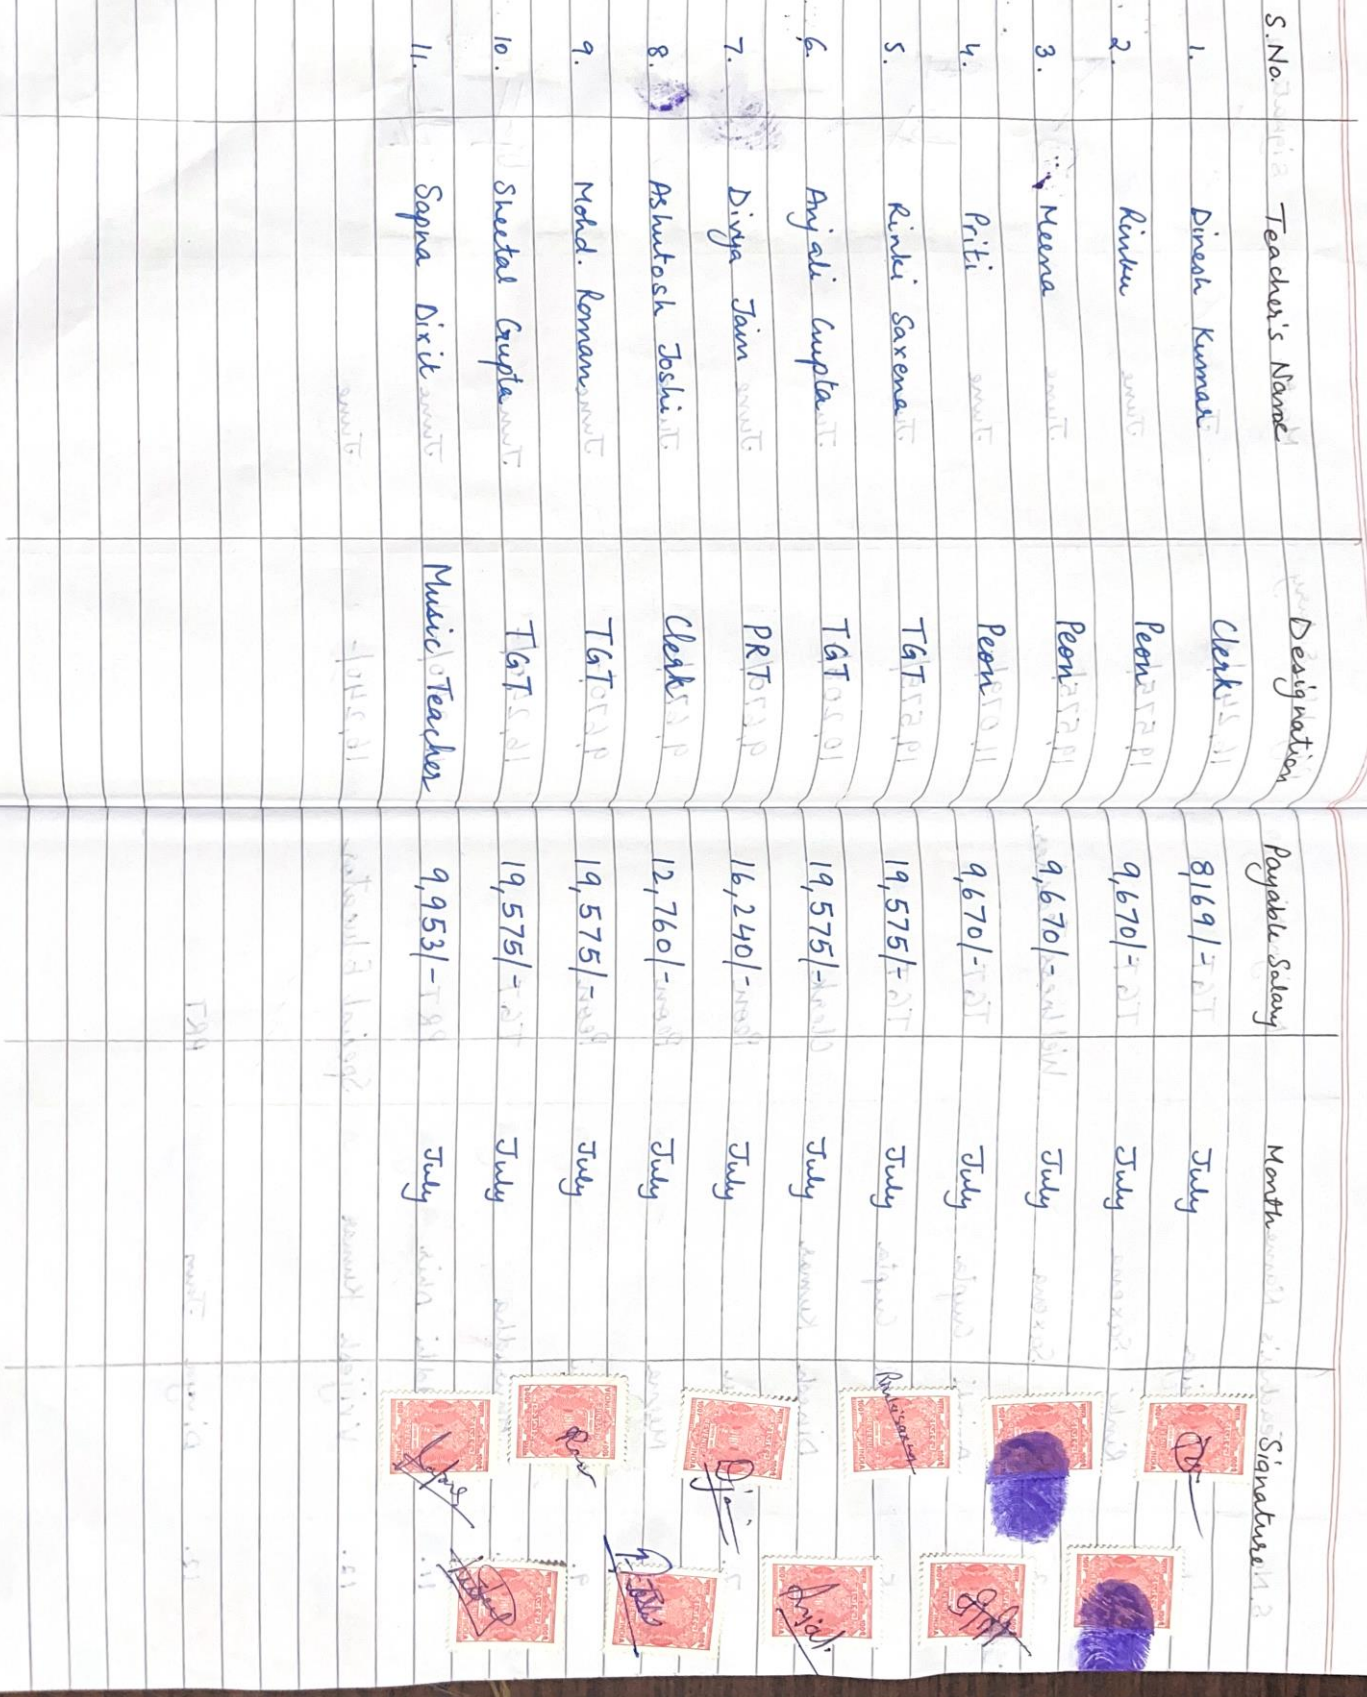 S.No. Teacher's Name Designation Payable Salary Month Signature
1. Dinesh Kumar Clerk 8169/- July
2. Rinku Peon 9,670/- July
3. Meena Peon 9,670/- July
4. Priti Peon 9,670/- July
5. Rinki Saxena TGT 19,575/- July Rinki Saxena
6. Anjali Gupta TGT 19,575/- July Anjali
7. Divya Jain PRT 16,240/- July Djain
8. Ashutosh Joshi Clerk 12,760/- July
9. Mohd. Roman TGT 19,575/- July
10. Sheetal Gupta TGT 19,575/- July
11. Sapna Dixit Music Teacher 9,953/- July